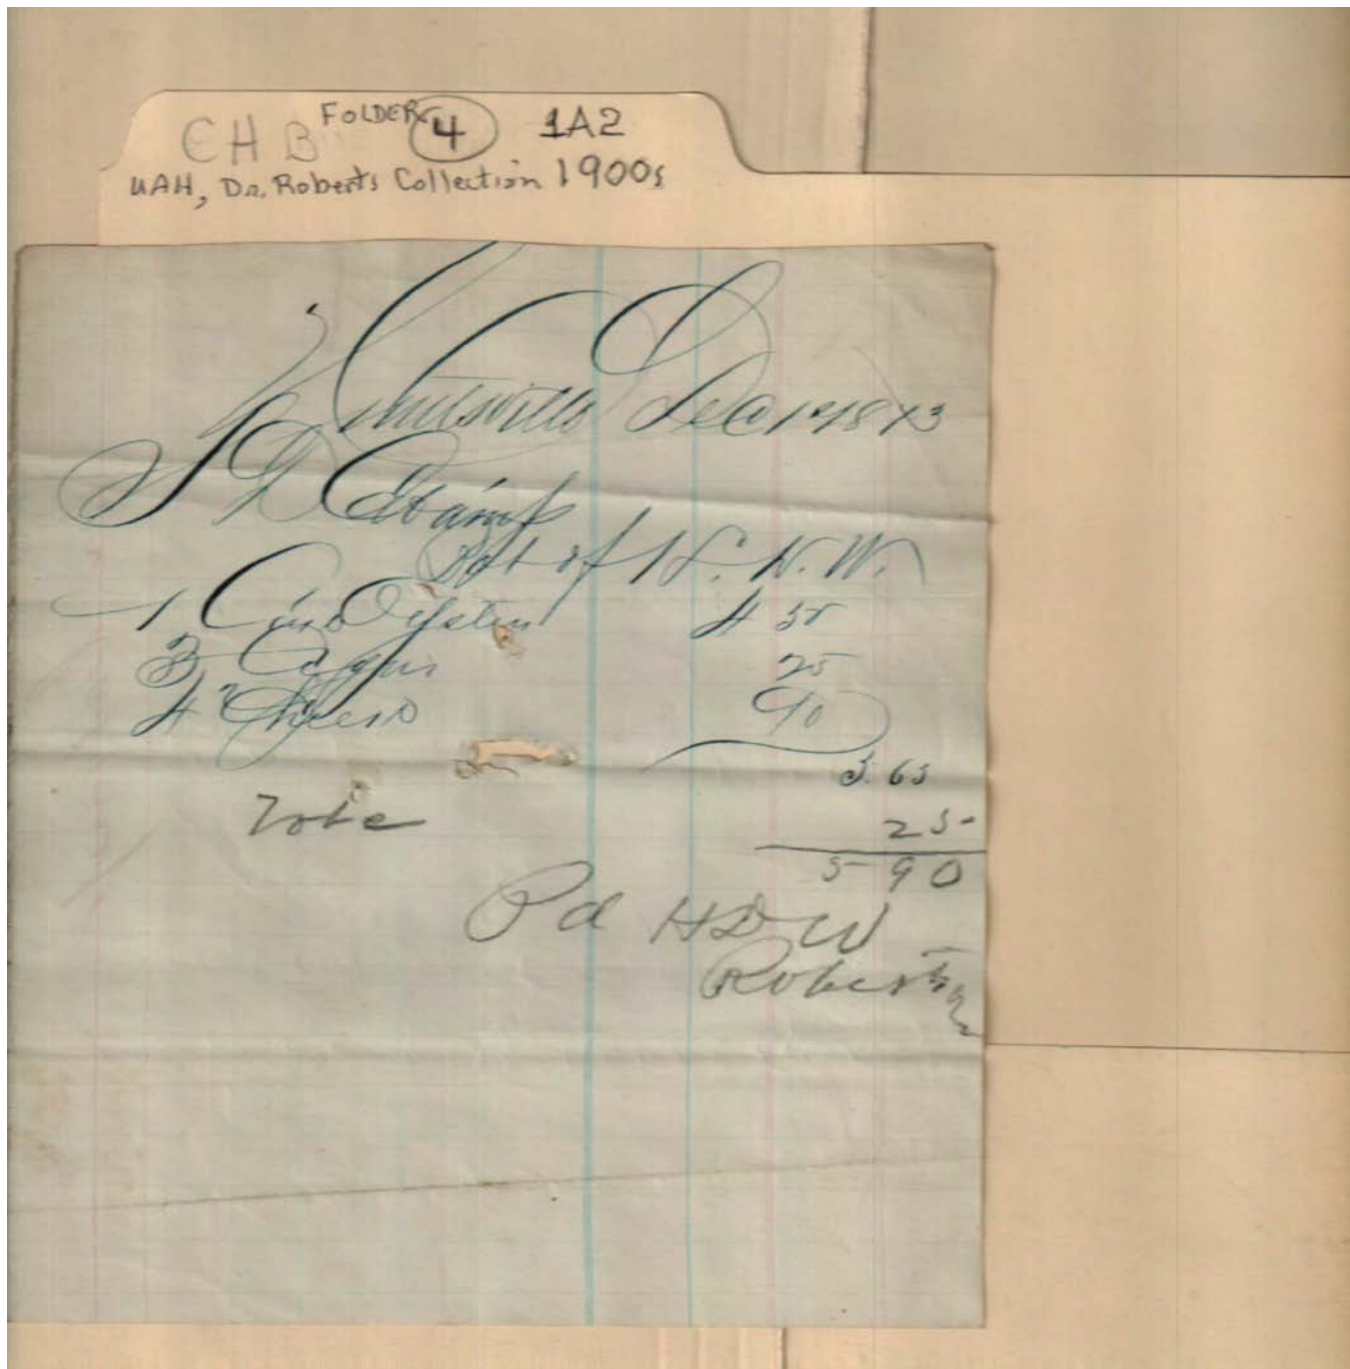 CHB FOLDER 4 1A2
UAH, Dr. Roberts Collection 1900s
Huntsville Dec 1st 1873
S D
Bot of H. N. W.
1 Can Oysters 4 50
25
4 " Cheese 90
5.65
25
5 90
Pd H D W
Roberts